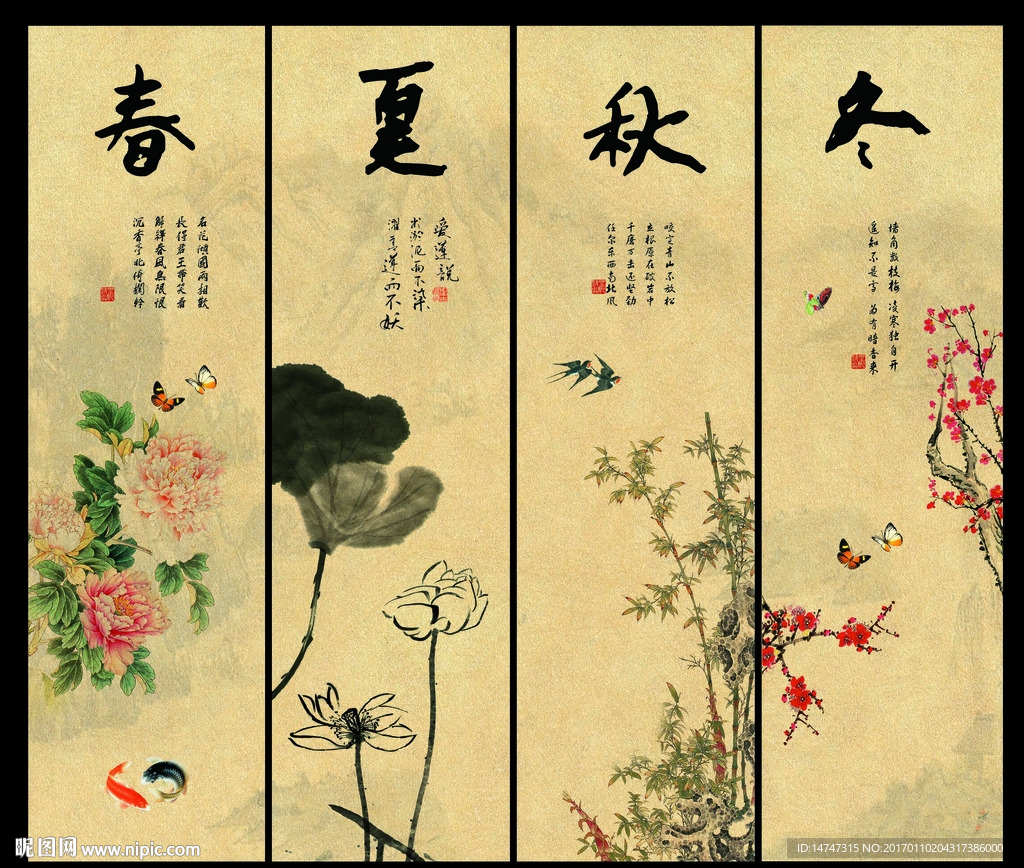 春
名花倾国两相欢
长得君王带笑看
解释春风无限恨
沉香亭北倚栏杆
夏
爱莲說
出於泥而不染
濯清漣而不妖
秋
咬定青山不放松
立根原在破岩中
千磨万击还坚劲
任尔东西南北风
冬
墙角数枝梅 凌寒独自开
遥知不是雪 为有暗香来
昵图网 www.nipic.com
ID:14747315 NO:20170110204317386000